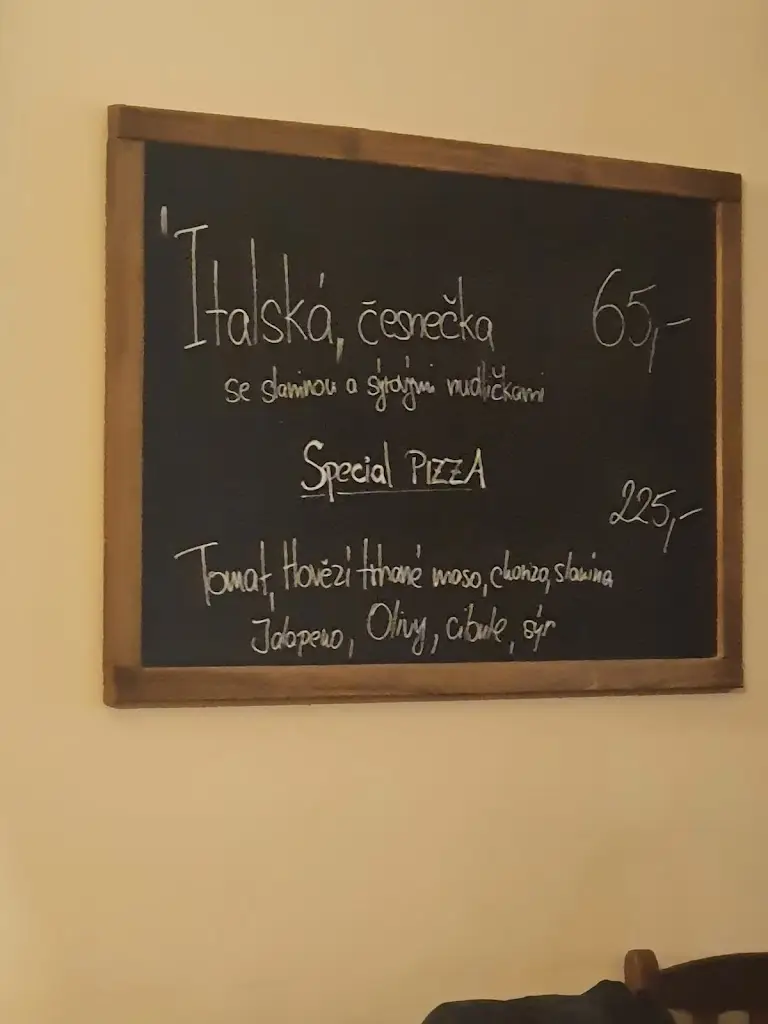 Italská, česnečka 65,-
se slaninou a sýrovými nudličkami
Special PIZZA
225,-
Tomat, Hovězí trhané maso, chorizo, slanina
Jalapeno, Olivy, cibule, sýr